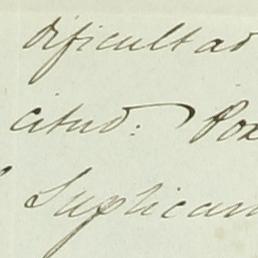 dificultad
citud: Por
Suplican